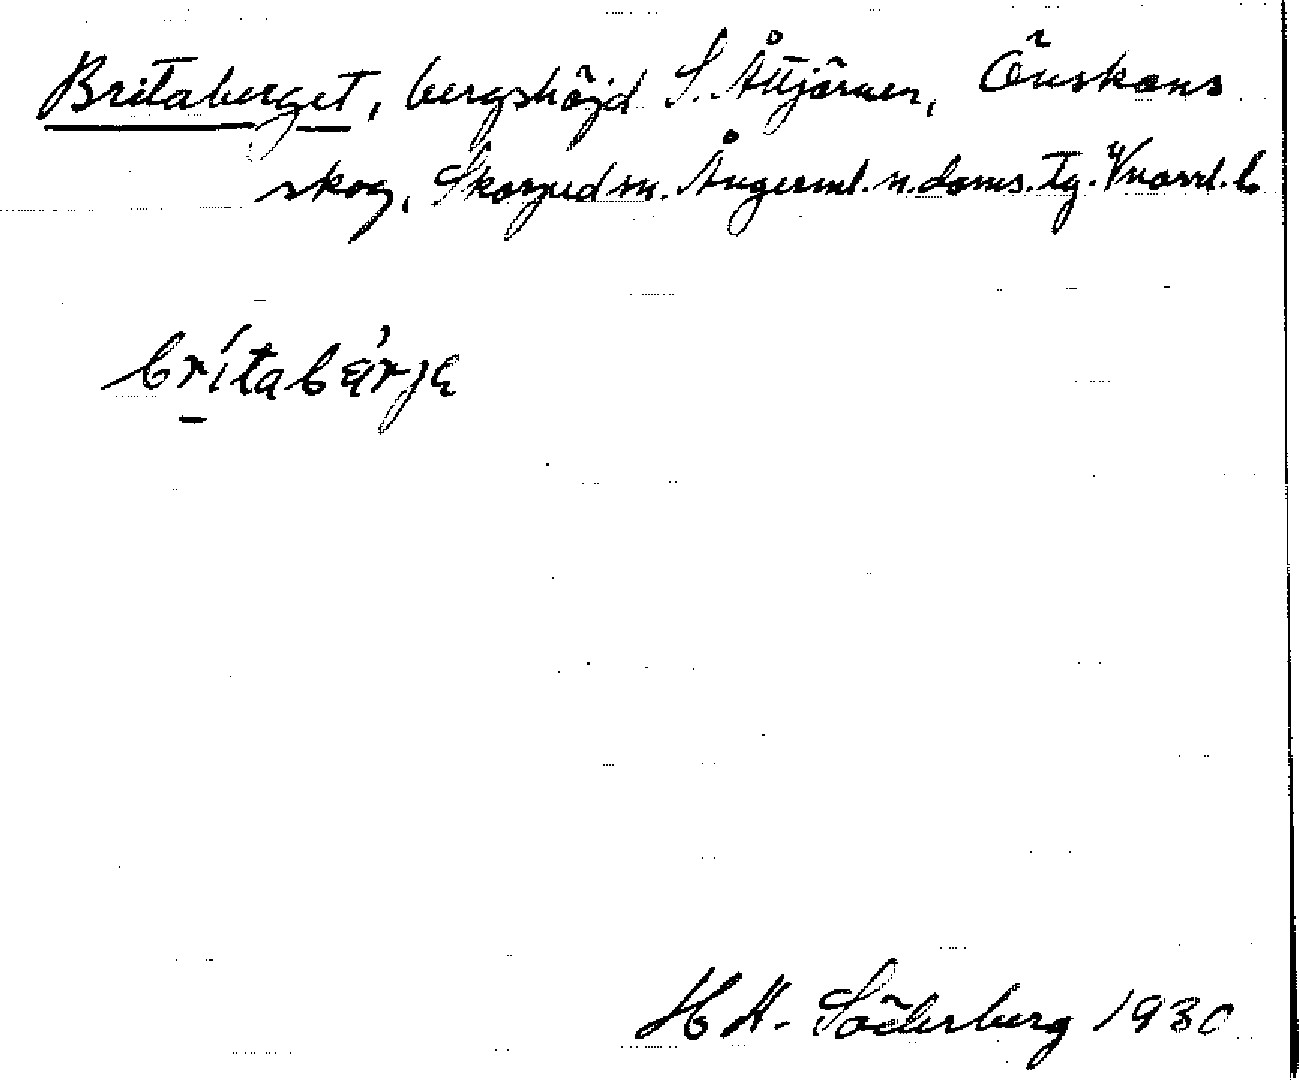 Britaberget, bergshöjd S. Åttjärnen, Önskans
skog, Skorped sn. Ångerml. n. doms. tg. V nordl. b
britabärjɛ
H H. Söderberg 1930